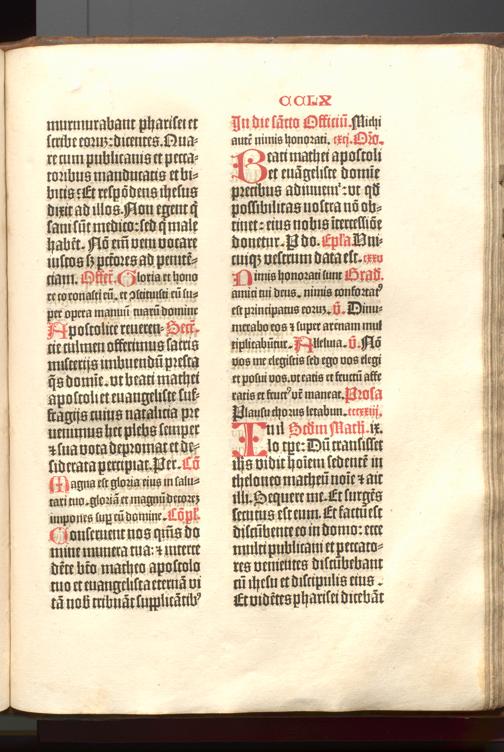 CCLX
murmurabant pharisei et
scribe eorum: dicentes. Qua-
re cum publicanis et pecca-
toribus manducatis et bi-
bitis: Et respōdens ihesus
dixit ad illos. Non egent q̄
sani sūt medico: sed q̄ male
habēt. Nō em̄ veni vocare
iustos sꝫ pctōres ad peniten-
ciam. Offert̄. Gloria et hono
re coronasti eū. et ꝯstituisti eū su-
per opera manuū tuarū domine
Apostolice reueren- Secr̄.
tie culmen offerimus sacris
misterijs imbuendū presta
q̄s domīe. vt beati mathei
apostoli et euangeliste suf-
fragijs cuius natalicia pre
uenimus hec plebs semper
⁊ sua vota depromat et de-
siderata percipiat. Per. Cō
Magna est gloria eius in salu-
tari tuo. gloriā et magnū decorē
impones sup eū domine. Cōpl̄.
Conseruent nos q̄ns do
mine munera tua: ⁊ interce
dēte bt̄o matheo apostolo
tuo et euangelista eternā vi
tā nob̄ tribuāt supplicātibꝰ
In die sācto Officiū. Michi
autē nimis honorati. cxij. Orō.
Beati mathei apostoli
et euāgeliste domīe
precibus adiuuemꝰ: vt qd̄
possibilitas nostra nō ob-
tinet: eius nobis īt̄cessiōe
donetur. P do. Epl̄a. Vni-
cuiqꝫ vestrum data est. cxxv
Nimis honorati sunt Grad̄.
amici tui deus. nimis confortatꝰ
est principatus eorū. v̄. Dinu-
merabo eos ⁊ super arenam mul
tiplicabūtur. Alleluia. v̄. Nō
vos me elegistis sed ego vos elegi
et posui vos. vt eatis et fructū affe
ratis et fructꝰ vr̄ maneat. Prosa
Plausu chorus letabun. ccccxxiij.
Jnil Scdm Math. ix.
lo tpe: Dū transisset
ihs vidit hoīem sedentē in
theloneo matheū noīe ⁊ ait
illi. Sequere me. Et surgēs
secutus est eum. Et factū est
discūbente eo in domo: ecce
multi publicani et peccato-
res venientes discūbebant
cū ihesu et discipulis eius.
Et vidētes pharisei dicebāt